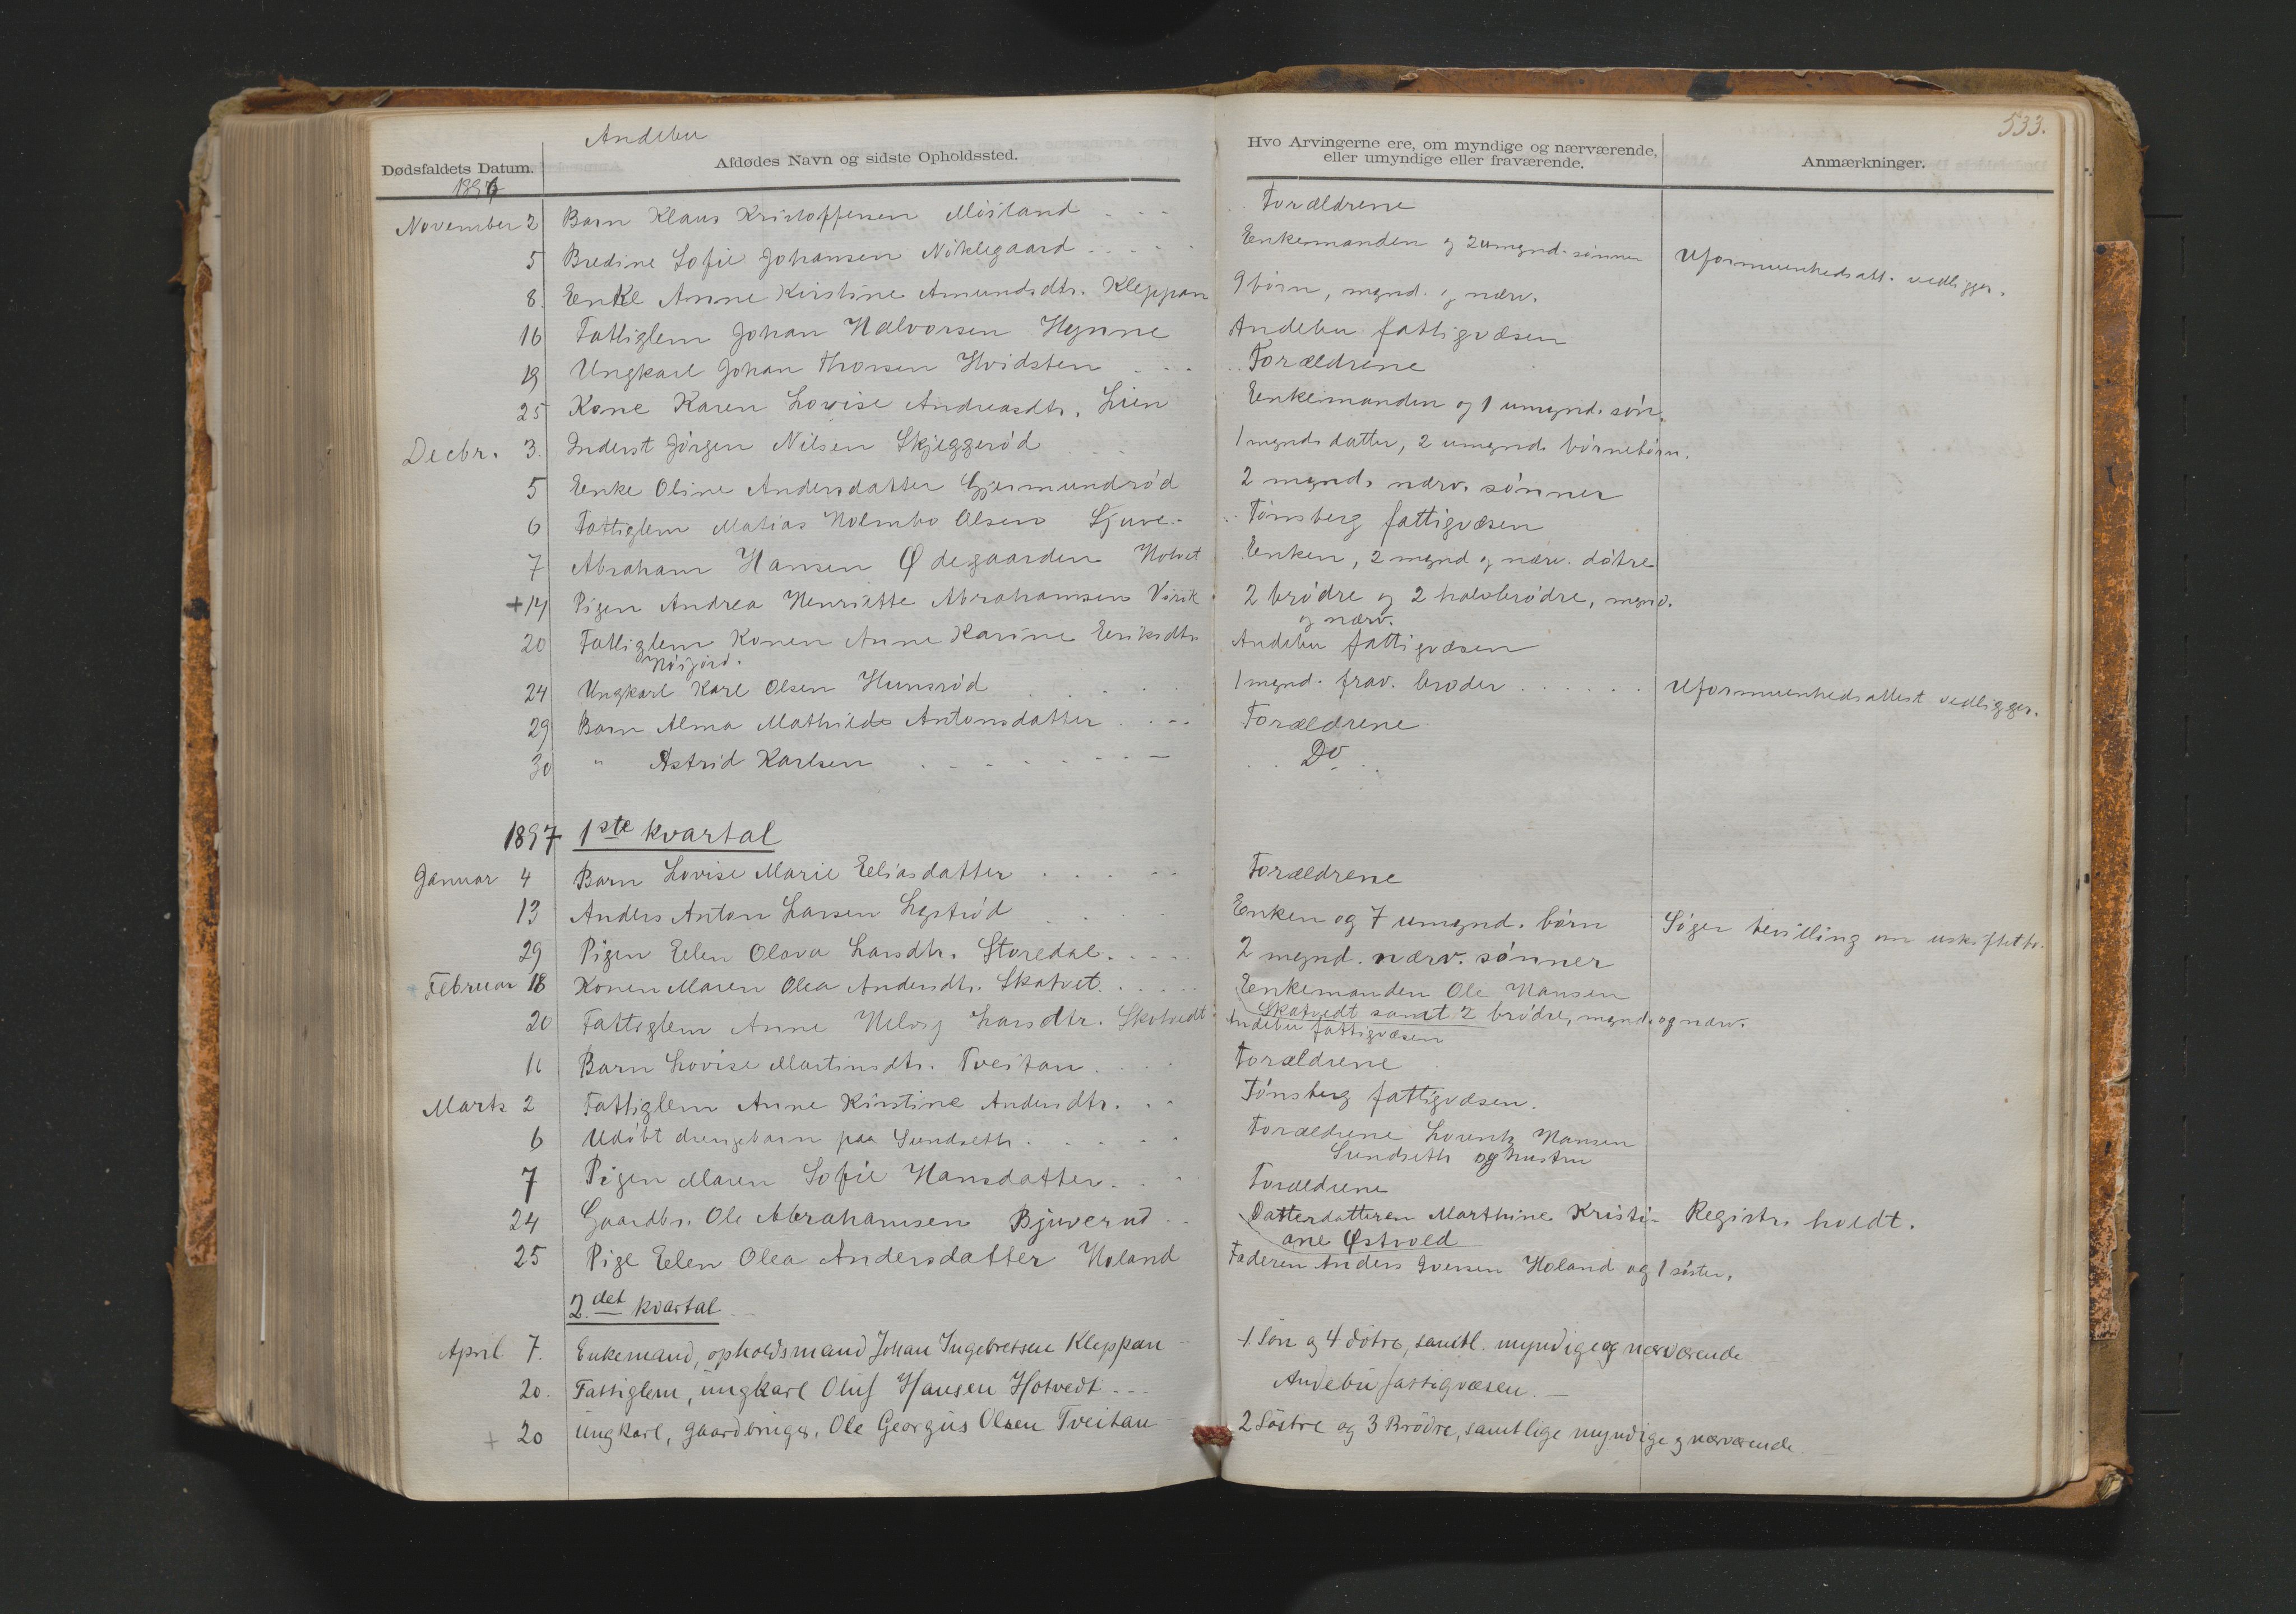 Andebu
533.
Dødsfaldets Datum. Afdødes Navn og sidste Opholdssted. Hvo Arvingerne ere, om myndige og nærværende, eller umyndige eller fraværende. Anmærkninger.
1896
November 2 Barn Klaus Kristoffersen Møiland Forældrene
5 Bredine Sofie Johansen Nøklegaard Enkemanden og 2 umynd. sønner Uformuenhedsatt. vedligger.
8. Enke Anne Kirstine Amundsdtr. Kleppan 9 børn, mynd. og nærv.
16 Fattiglem Johan Halvorsen Hynne Andebu fattigvæsen
19 Ungkarl Johan Thorsen Hvidsten Forældrene
25 Kone Karen Lovise Andreasdtr. Lien Enkemanden og 1 umynd. søn.
Decbr. 3. Inderst Jørgen Nilsen Skjeggerød 1 mynd. datter, 2 umynd. børnebørn.
5 Enke Oline Andersdatter Gjermundrød 2 mynd. nærv. sønner
6 Fattiglem Matias Holmbo Olsen Sjuve Tønsberg fattigvæsen
7 Abraham Hansen Ødegaarden Hotvet Enken, 2 mynd og nærv. døtre
+ 14 Pigen Andrea Henriette Abrahamsen Virik 2 brødre og 2 halvbrødre, mynd.
og nærv.
20 Fattiglem Konen Anne Karine Eriksdtr. Andebu fattigvæsen
Høijord.
24 Ungkarl Karl Olsen Hunsrød 1 mynd. frav. broder Uformuenhedsattest vedligger.
29 Barn Alma Mathilde Antonsdatter Forældrene
30 " Astrid Karlsen Do
1897 1ste kvartal
Januar 4 Barn Lovise Marie Eliasdatter Forældrene
13 Anders Anton Larsen Enken og 7 umynd. børn Søger bevilling om uskiftet bo.
29 Pigen Elen Olava Larsdtr. Storedal. 2 mynd. nærv. sønner
Februar 18 Konen Maren Olea Andersdtr. Skatvet. Enkemanden Ole Hansen
Skatvedt samt 2 brødre, mynd. og nærv.
20 Fattiglem Anne Helvig Larsdtr. Skatvedt Andebu fattigvæsen
11 Barn Lovise Martinsdtr. Tveitan Forældrene
Marts 2 Fattiglem Anne Kirstine Andersdtr. Tønsberg fattigvæsen.
6 Udøbt drengebarn paa Sundseth. Forældrene Lorents Hansen
Sundseth og hustru
7 Pigen Maren Sofie Hansdatter. Forældrene
24 Gaardbr. Ole Abrahamsen Bjuverud Datterdatteren Marthine Kristi- Registr. holdt.
ane Østvold
25 Pige Elen Olea Andersdatter Holand Faderen Anders Iversen Holand og 1 søster.
2det kvartal
April 7. Enkemand, opholdsmand Johan Ingebretsen Kleppan 1 Søn og 4 døtre, samtl. myndige og nærværende
20. Fattiglem, ungkarl Oluf Hansen Hotvedt Andebu fattigvæsen.
+ 20 Ungkarl, gaardbruger, Ole Georgius Olsen Tveitan 2 Søstre og 3 Brødre, samtlige myndige og nærværende.